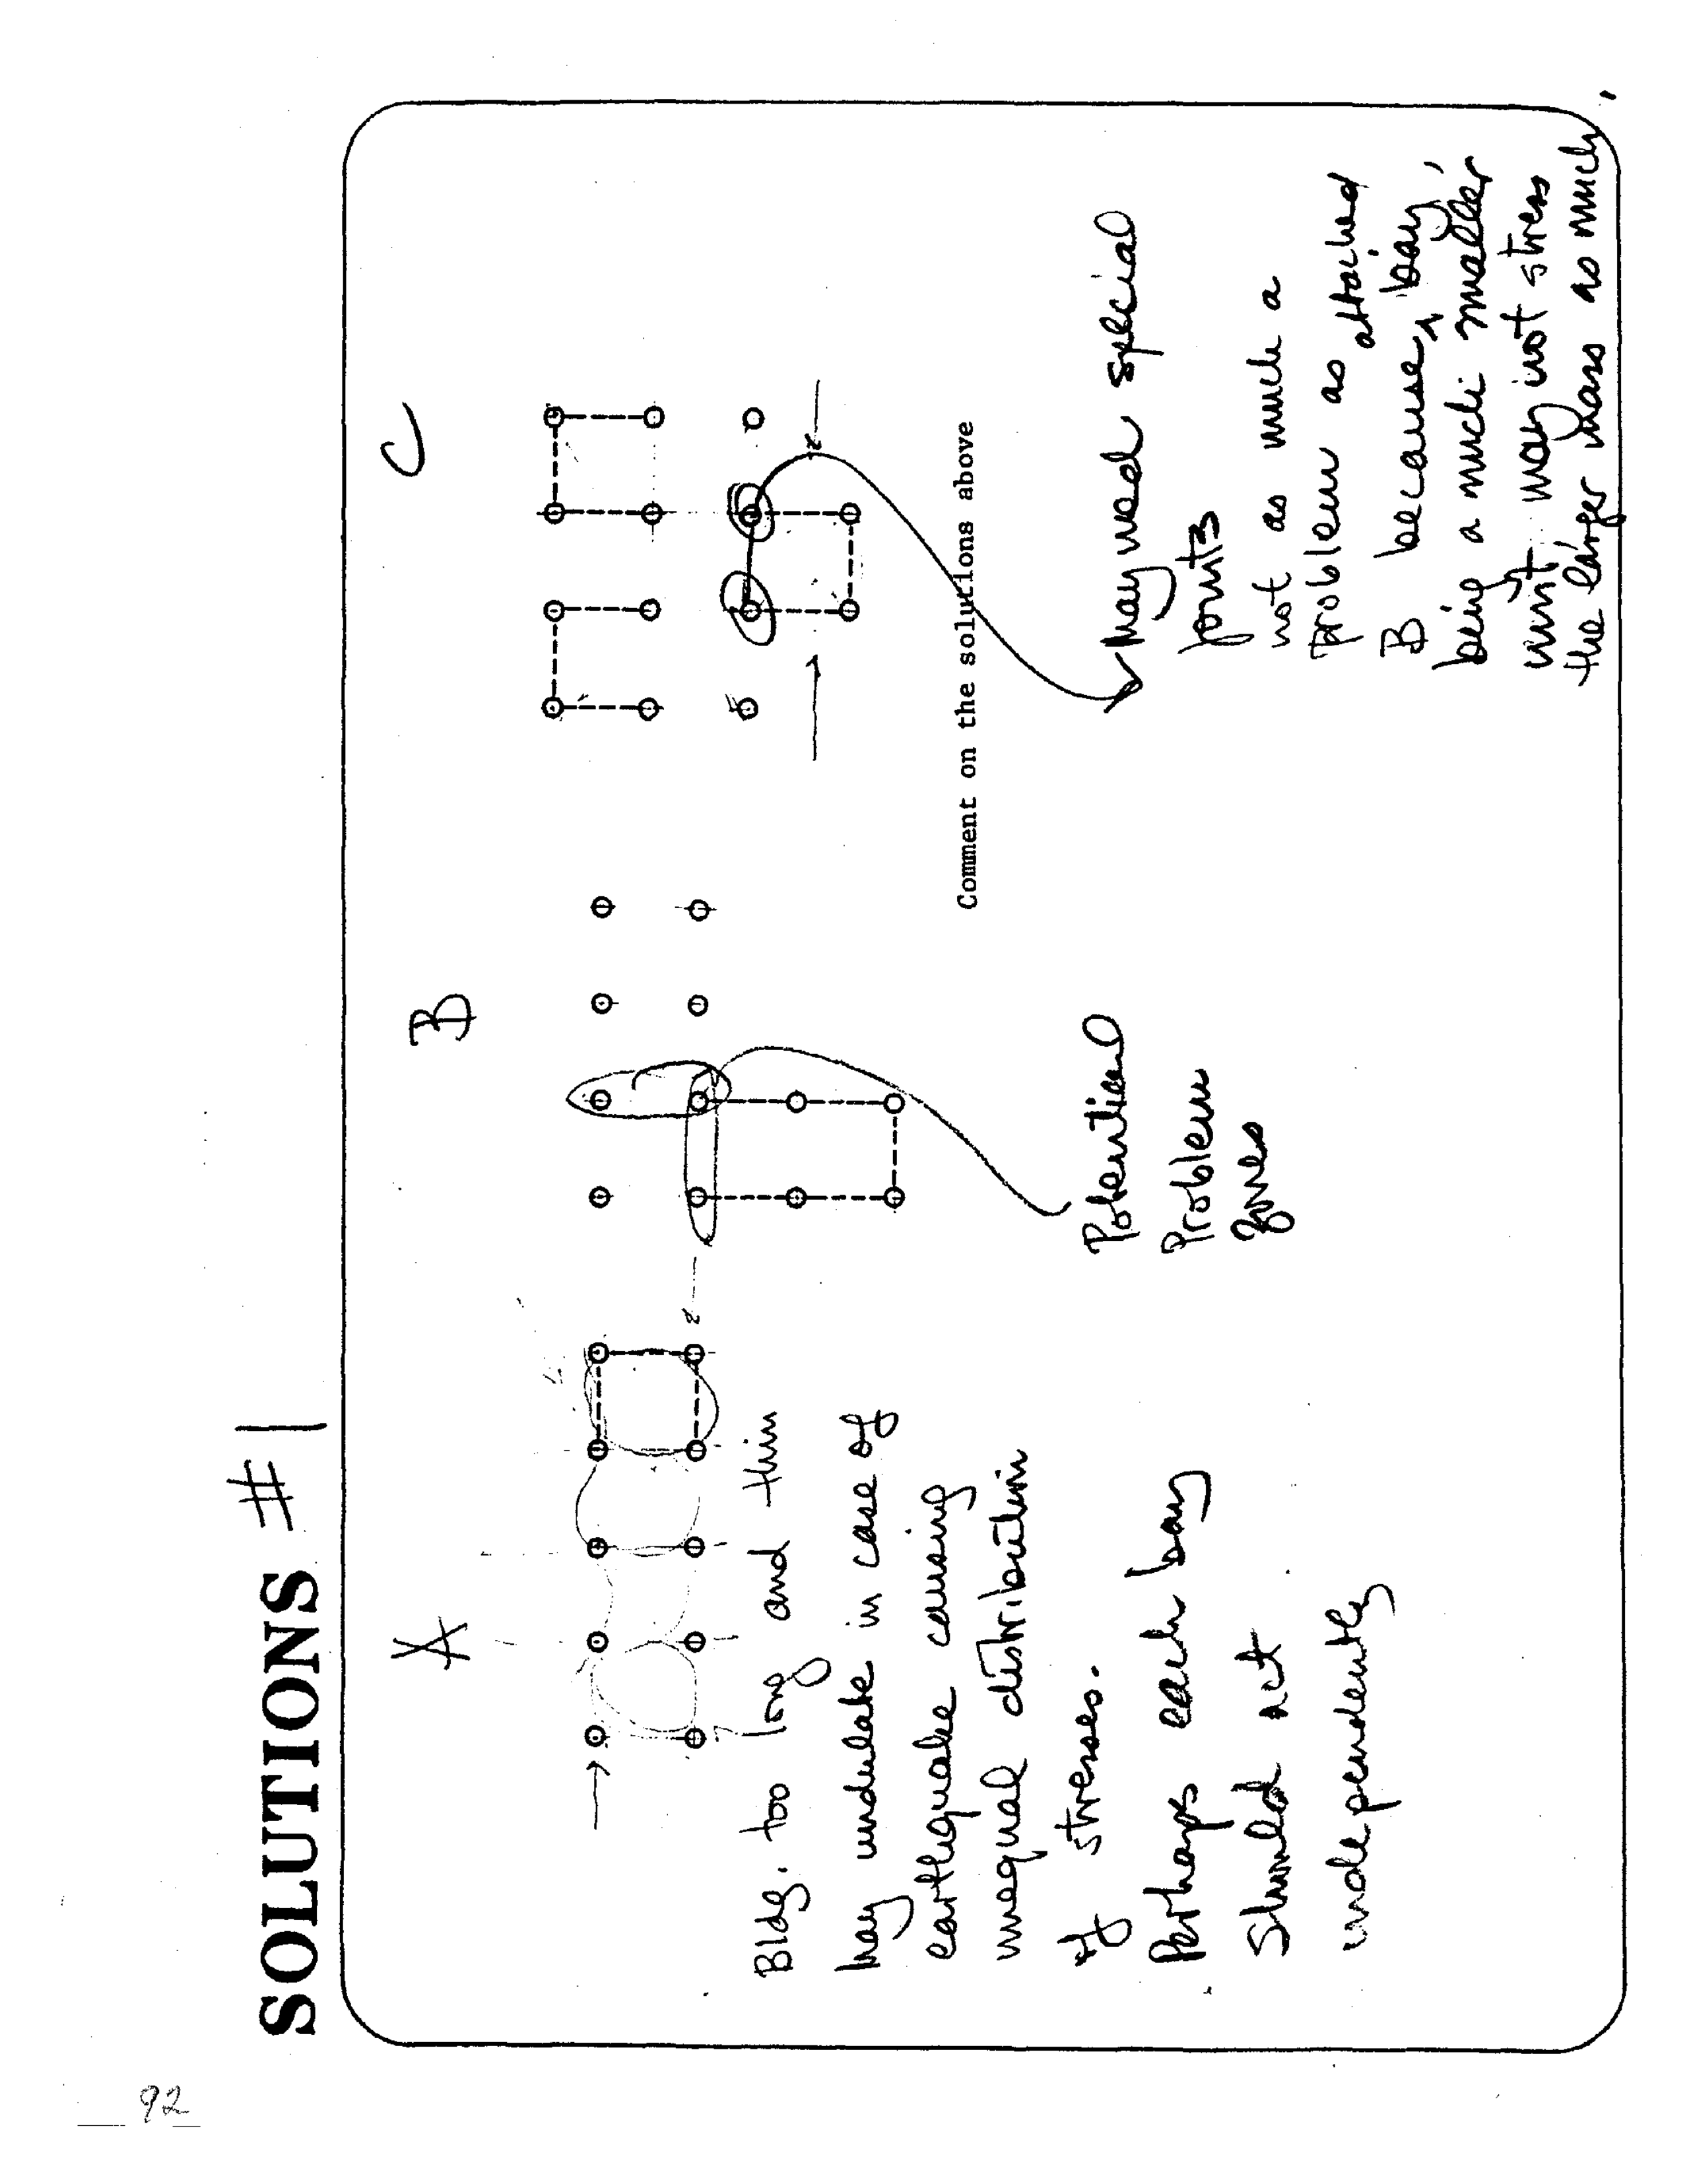 SOLUTIONS #1
A
B
C
Bldg. too long and thin
may undulate in case of
earthquake causing
unequal distribution
of stresses.
Perhaps each bay
should act
independently
Potential
Problem
Zones
Comment on the solutions above
May need special
joints
not as much a
problem as attached
B because, bay,
being a much smaller
unit, may not stress
the larger mass as much.
92